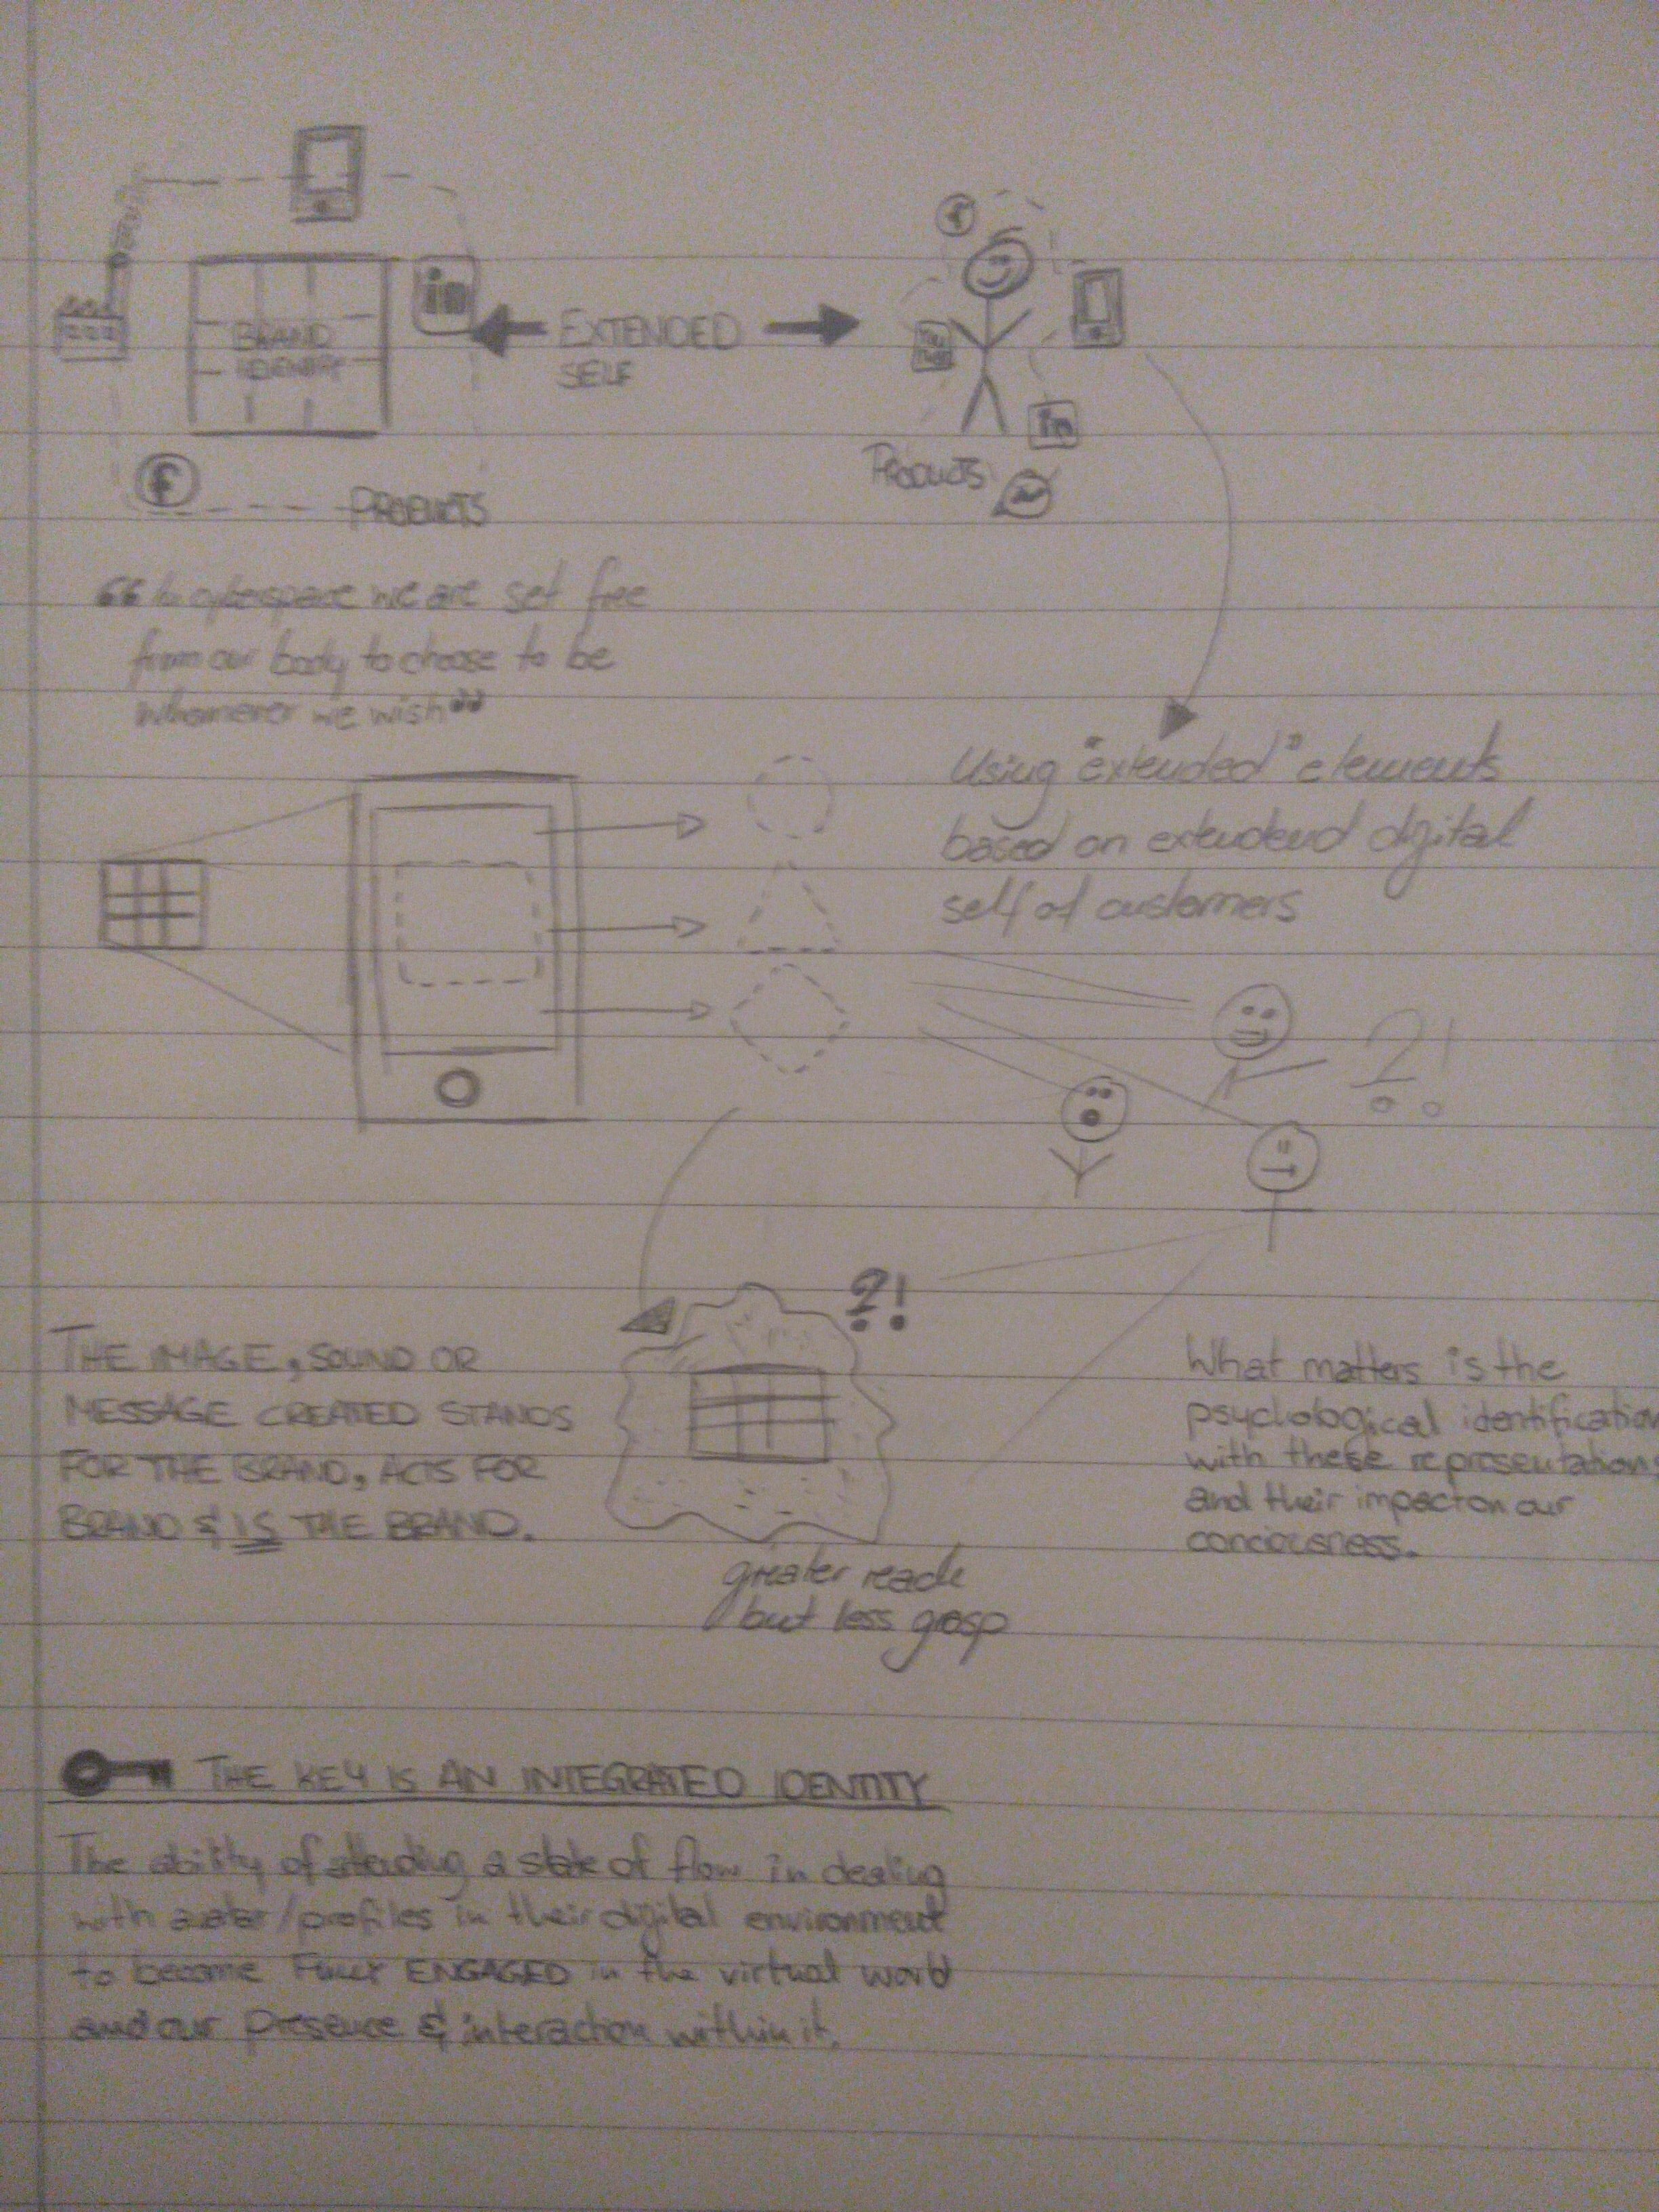 BRAND
IDENTITY
in
EXTENDED
SELF
f
PRODUCTS
f
You
Tube
in
PRODUCTS
“In cyberspace we are set free
from our body to choose to be
whomever we wish”
Using "extended" elements
based on extendend digital
self of customers
?!
?!
THE IMAGE, SOUND OR
MESSAGE CREATED STANDS
FOR THE BRAND, ACTS FOR
BRAND & IS THE BRAND.
greater reach
but less grasp
What matters is the
psychological identification
with these representations
and their impact on our
conciousness.
THE KEY IS AN INTEGRATED IDENTITY
The ability of attending a state of flow in dealing
with avatar/profiles in their digital environment
to become FULLY ENGAGED in the virtual world
and our presence & interaction within it.